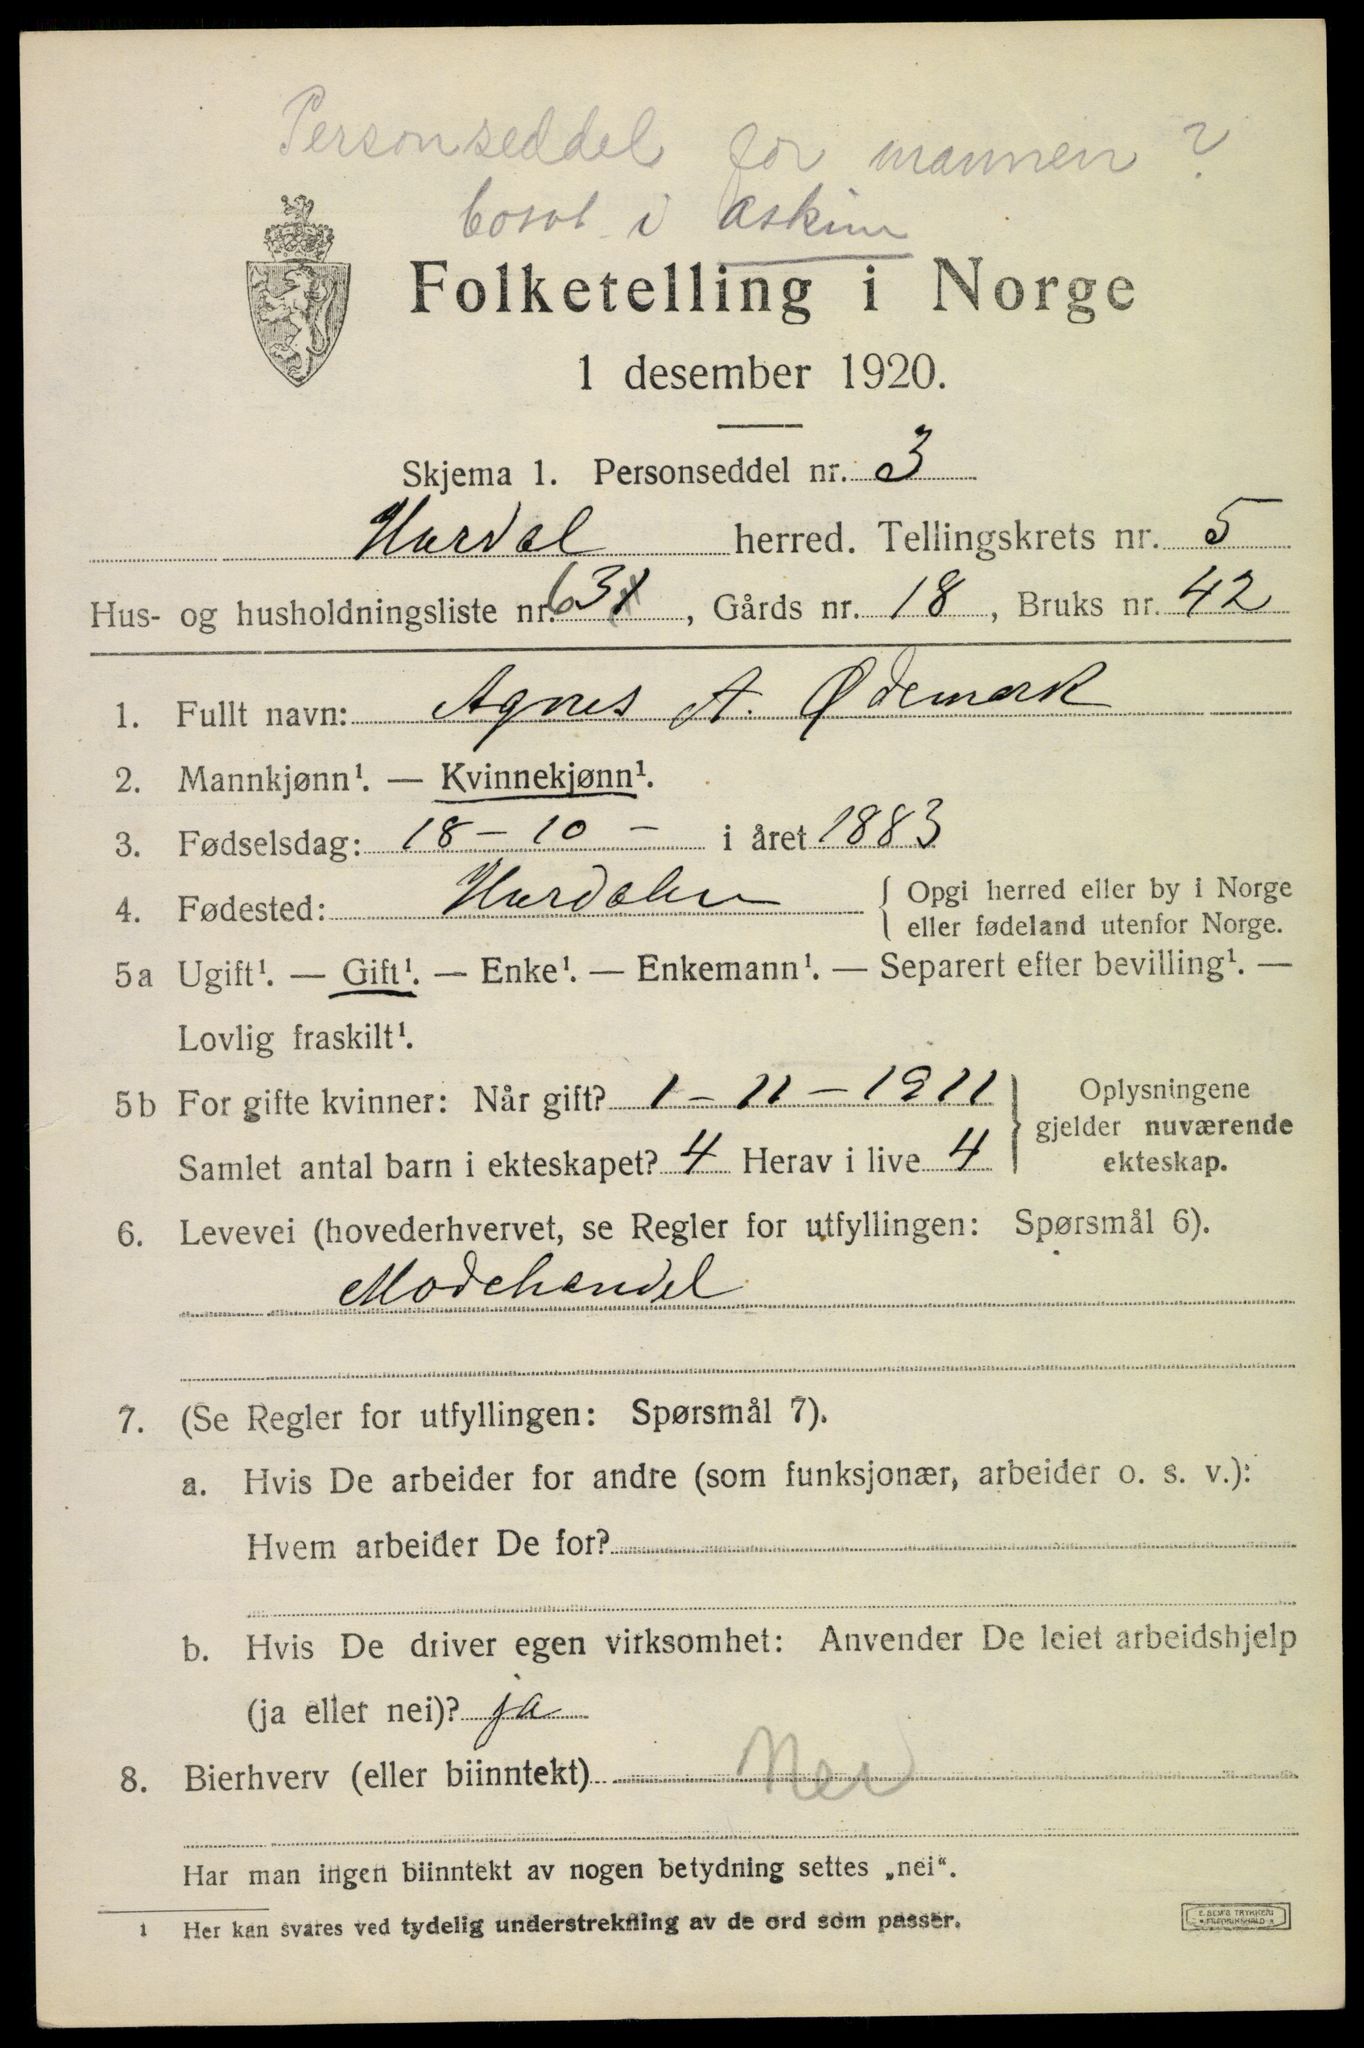 Personseddel for mannen?
bosat i Askim
Folketelling i Norge
1 desember 1920.
Skjema 1. Personseddel nr. 3
Hurdal herred. Tellingskrets nr. 5
Hus- og husholdningsliste nr. 63, Gårds nr. 18, Bruks nr. 42
1. Fullt navn: Agnes A. Ødemark
2. Mannkjønn¹. — Kvinnekjønn¹.
3. Fødselsdag: 18 – 10 – i året 1883
4. Fødested: Hurdalen { Opgi herred eller by i Norge
eller fødeland utenfor Norge.
5a Ugift¹. — Gift¹. — Enke¹. — Enkemann¹. — Separert efter bevilling¹. —
Lovlig fraskilt¹.
5b For gifte kvinner: Når gift? 1 – 11 – 1911
Samlet antal barn i ekteskapet? 4 Herav i live 4
} Oplysningene
gjelder nuværende
ekteskap.
6. Levevei (hovederhvervet, se Regler for utfyllingen: Spørsmål 6).
Modehandel
7. (Se Regler for utfyllingen: Spørsmål 7).
a. Hvis De arbeider for andre (som funksjonær, arbeider o. s. v.):
Hvem arbeider De for?
b. Hvis De driver egen virksomhet: Anvender De leiet arbeidshjelp
(ja eller nei)? ja
8. Bierhverv (eller biinntekt) Nei
Har man ingen biinntekt av nogen betydning settes „nei“.
¹ Her kan svares ved tydelig understrekning av de ord som passer.
E. SEM'S TRYKKERI
FREDRIKSHALD